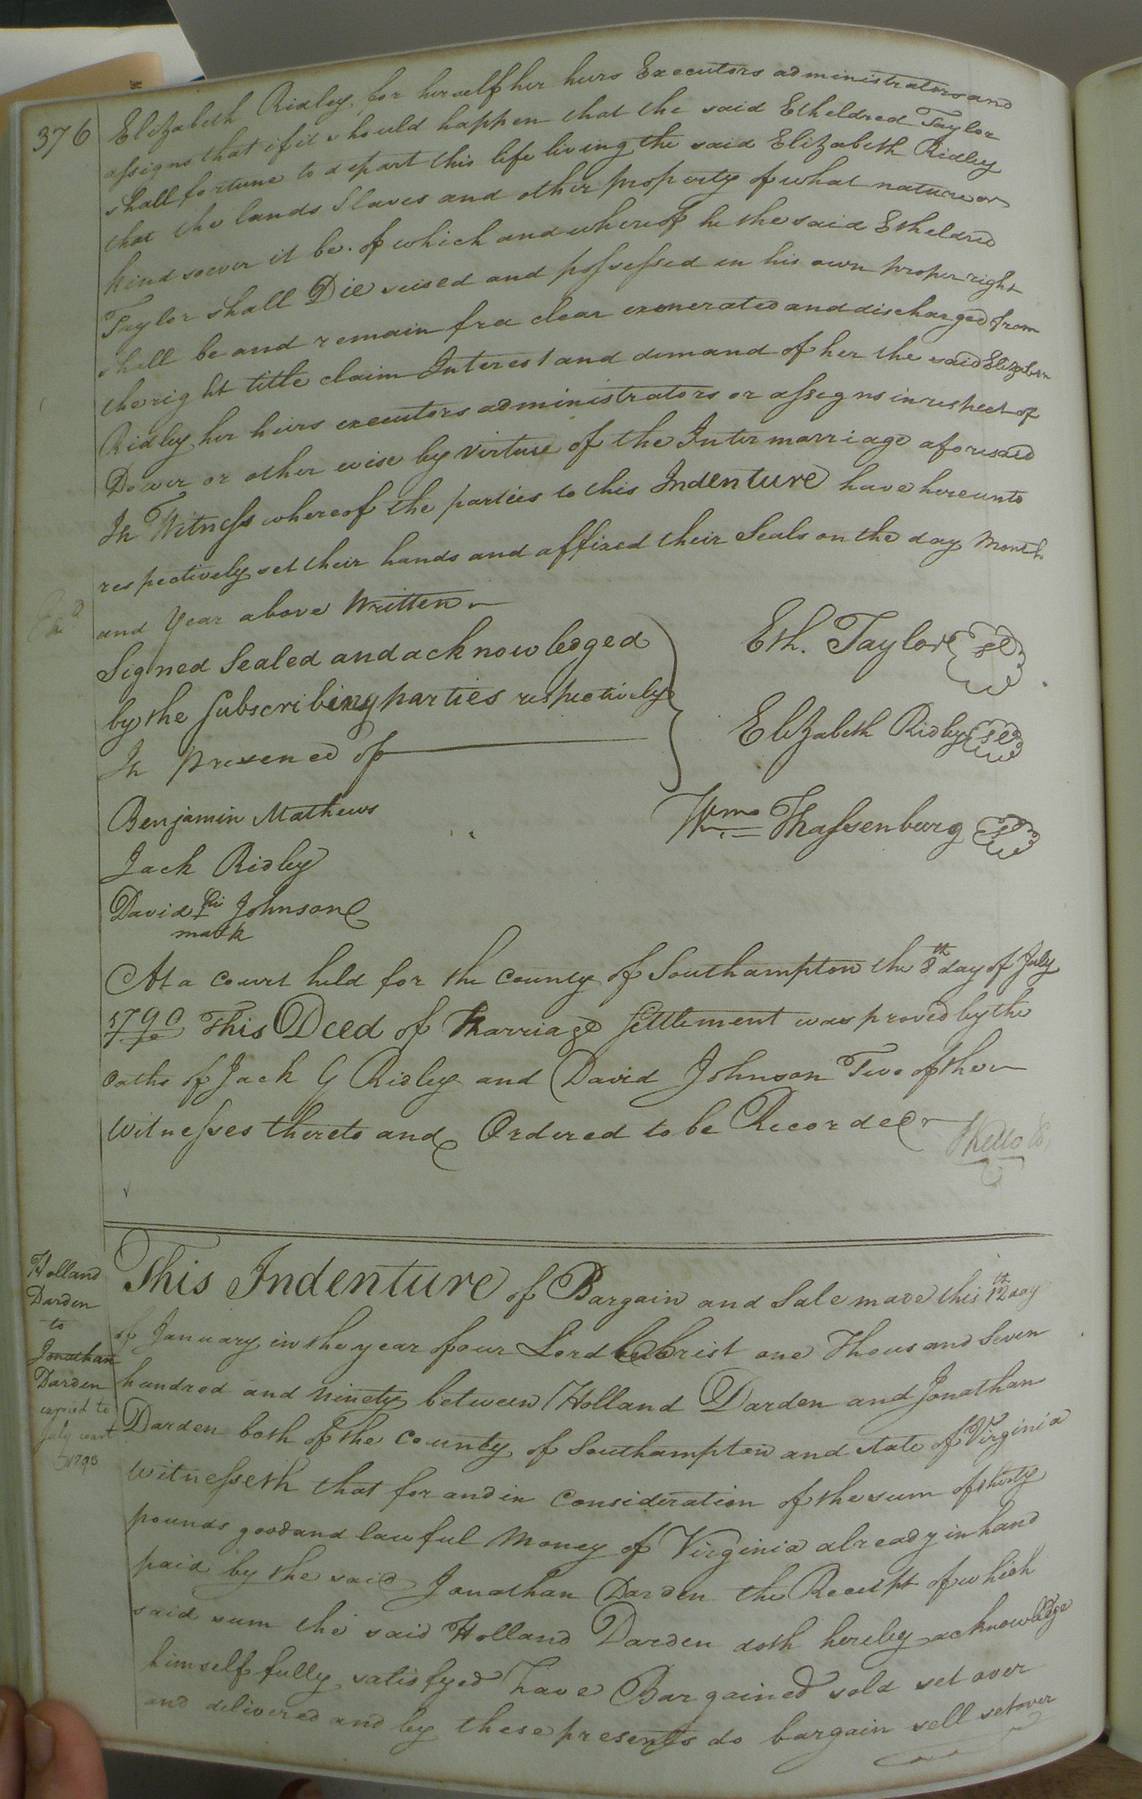 376
Elizabeth Ridley, for herself her heirs Executors administrators and
assigns that if it should happen that the said Etheldred Taylor
shall fortune to depart this life living the said Elizabeth Ridley
that the lands Slaves and other property of what nature or
kind soever it be. of which and whereof he the said Etheldred
Taylor shall Die seised and possessed in his own proper right
shall be and remain free clear exonerated and discharged from
the right title claim Interest and demand of her the said Elizabeth
Ridley her heirs executors administrators or assigns in respect of
Dower or other wise by virtue of the Intermarriage aforesaid
In Witness whereof the parties to this Indenture have hereunto
respectively set their hands and affixed their Seals on the day Month
and Year above Written
Signed Sealed and acknowledged
by the subscribing parties respectively
In presence of
Eth. Taylor
Elizabeth Ridley
Wm Thassenburg
Benjamin Mathews
Jack Ridley
David his Johnson
mark
At a court held for the county of Southampton the 8th day of July
1790 This Deed of Marriage settlement was proved by the
oaths of Jack G Ridley and David Johnson Two of the
Witnesses thereto and Ordered to be Recorded
Holland
Darden
to
Jonathan
Darden
July court
1790
This Indenture of Bargain and Sale made this 12th day
of January in the year of our Lord Christ one Thousand Seven
hundred and ninety between Holland Darden and Jonathan
Darden both of the County of Southampton and state of Virginia
Witnesseth that for and in Consideration of the sum of thirty
pounds good and lawful Money of Virginia already in hand
paid by the said Jonathan Darden the Receipt of which
said sum the said Holland Darden doth hereby acknowledge
himself fully satisfyed Have Bargained sold set over
and delivered and by these presents do bargain sell set over